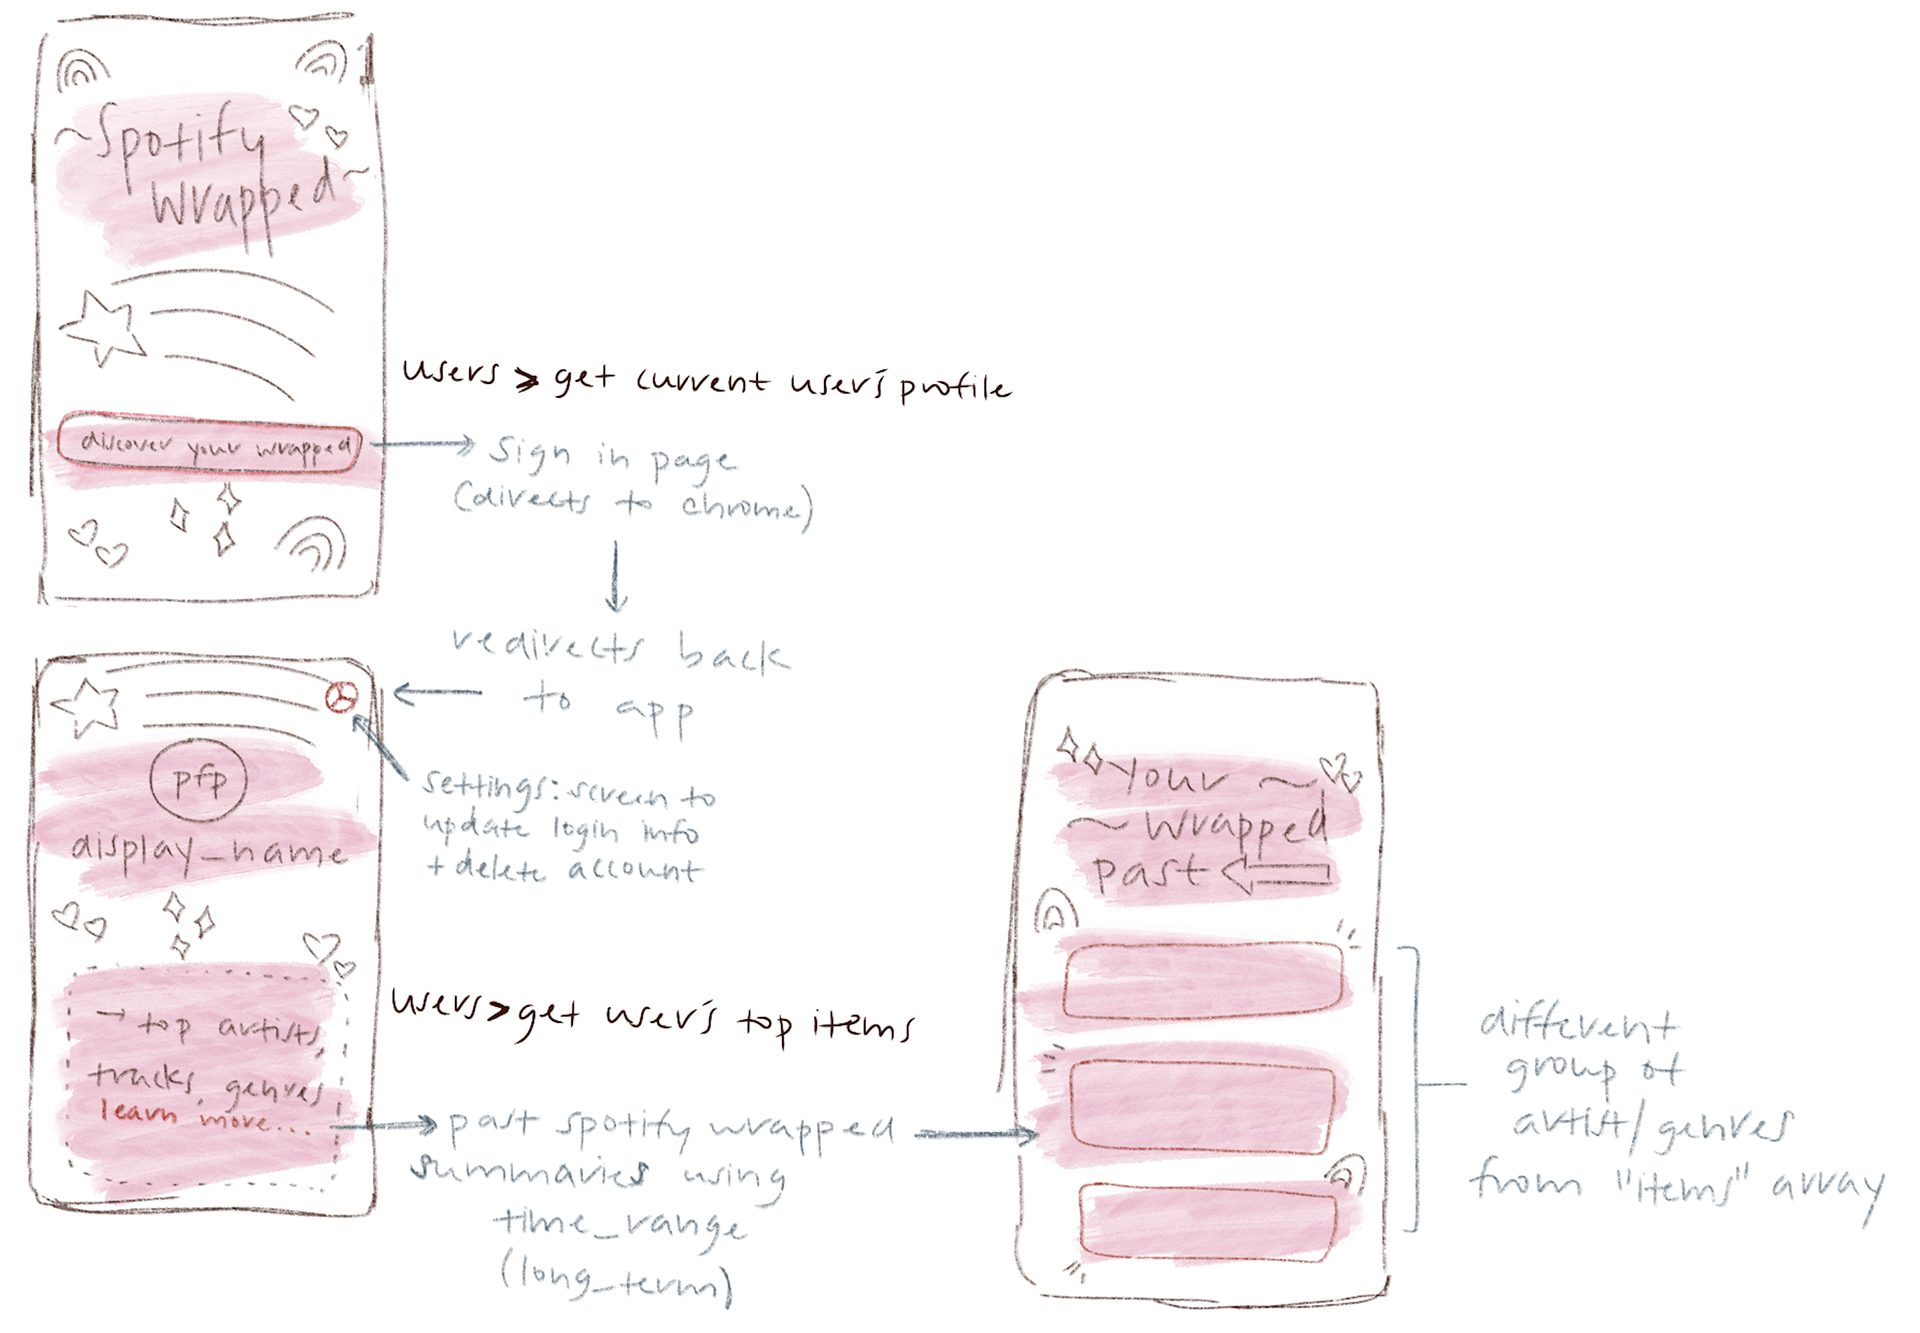 ~Spotify
Wrapped~
discover your wrapped
users > get current user's profile
sign in page
(directs to chrome)
redirects back
to app
settings: screen to
update login info
+ delete account
pfp
display_name
→ top artists,
tracks, genres
learn more...
users > get user's top items
past spotify wrapped
summaries using
time_range
(long_term)
your ~
~ wrapped
past
different
group of
artist/genres
from "items" array